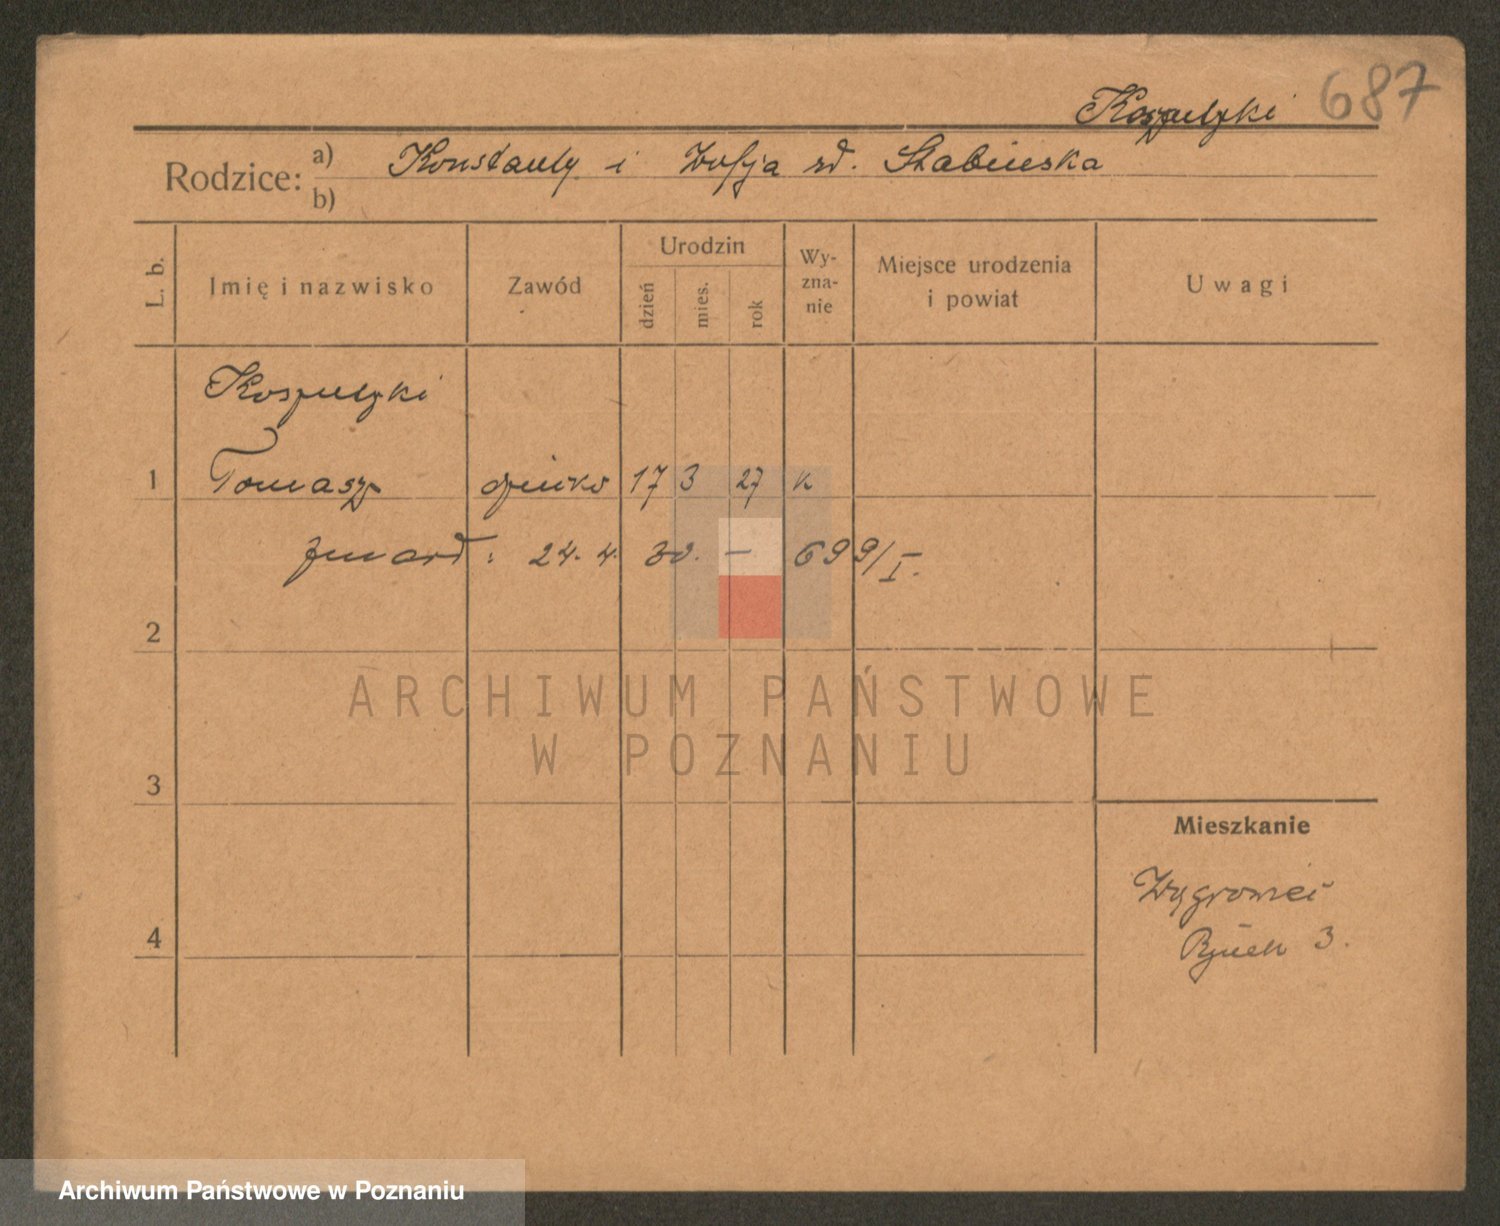 687
Koszulzki
Rodzice: a) Konstanty i Zofja rd. Stabinska
b)
L. b. Imię i nazwisko Zawód Urodzin dzień mies. rok Wy-zna-nie Miejsce urodzenia i powiat Uwagi
Koszulzki
1 Tomasz dziecko 17 3 27 k
zmarł: 24. 4. 30. — 699/I.
2
ARCHIWUM PAŃSTWOWE
W POZNANIU
3
Mieszkanie
Wągrowiec
4
Rynek 3.
Archiwum Państwowe w Poznaniu